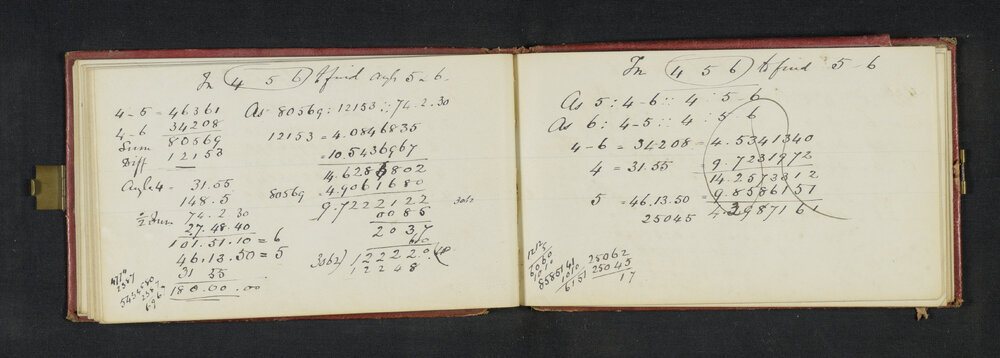 In (4 5 6) to find angs 5 & 6
4-5 = 46361
4-6 34208
Sum 80569
Diff 12153
Angle 4 = 31.55
148.5
½ Sum 74.2.30
27.48.40
101.51.10 = 6
46.13.50 = 5
31 55
180.00.00
As 80569 : 12153 :: 74.2.30
12153 = 4.0846835
= 10.5436967
14.6283802
80569 4.9061680
9.7222122
0085
2037
3062
3062) 12220
12248
In (4 5 6) to find 5-6
As 5 : 4-6 :: 4 : 5-6
As 6 : 4-5 :: 4 : 5-6
4-6 = 34208 = 4.5341340
4 = 31.55 = 9.7231972
14.2573312
5 = 46.13.50 = 9.8586151
25045 4.3987161
8585141
1010
6151
25062
25045
17